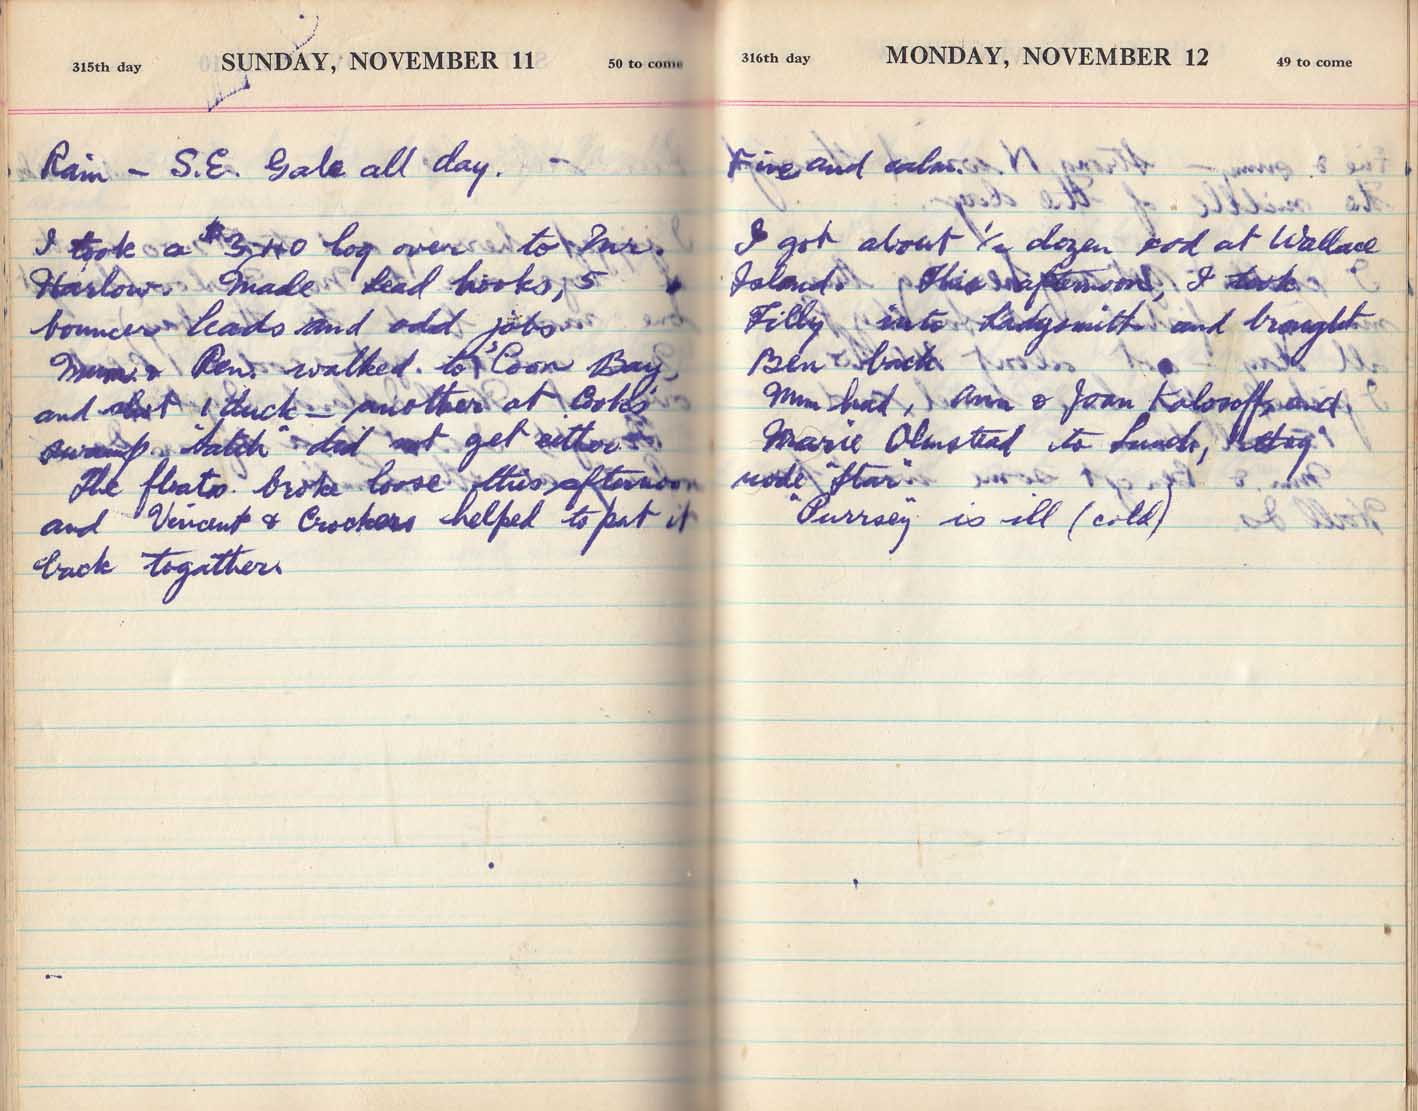 315th day SUNDAY, NOVEMBER 11 50 to come
Rain – S.E. Gale all day. –
I took a $3.40 log over to Mr.
Harlow. Made lead hooks, 5
bouncer leads and odd jobs
Mum & Pen. walked to 'Coon Bay
and shot 1 duck – another at Cooks
swamp did not get either
The floats broke loose this afternoon
and Vincent & Crockers helped to put it
back togather.
316th day MONDAY, NOVEMBER 12 49 to come
Fine and calm.
I got about ½ dozen cod at Wallace
Island. This afternoon, I took
Filly into Ladysmith and brought
Ben back
Mum had, Ann & Joan Kolosoff, and
Marie Olmstead to lunch,
rode "Star"
"Purrsey" is ill (cold)